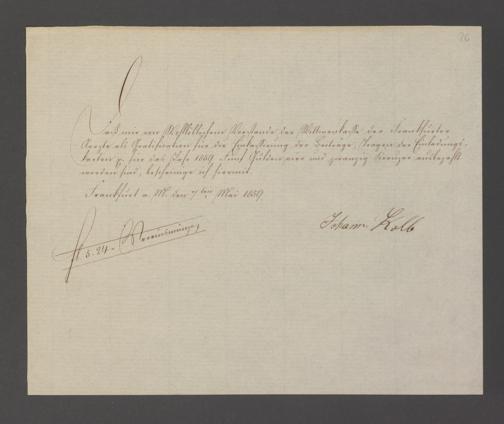 26
Daß mir von Wohllöblichem Vorstande der Wittwenkasse der Frankfurter
Aerzte als Gratification für die Einkassirung der Beiträge, Tragen der Einladungs-
karten p. für das Jahr 1859 fünf Gulden vier und zwanzig Kreuzer ausbezahlt
worden sind, bescheinige ich hiermit.
Frankfurt a. M. den 7ten Mai 1859
fl. 5. 24. Vereinsmünze
Johann Kolb